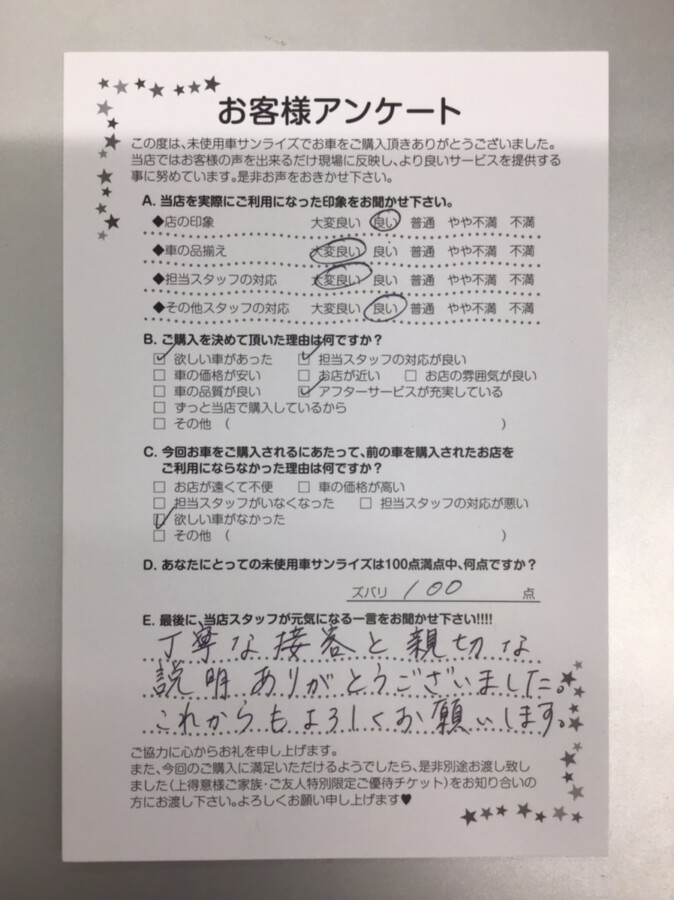 お客様アンケート
この度は、未使用車サンライズでお車をご購入頂きありがとうございました。
当店ではお客様の声を出来るだけ現場に反映し、より良いサービスを提供する
事に努めています。是非お声をおきかせ下さい。
A. 当店を実際にご利用になった印象をお聞かせ下さい。
◆店の印象 大変良い 良い 普通 やや不満 不満
◆車の品揃え 大変良い 良い 普通 やや不満 不満
◆担当スタッフの対応 大変良い 良い 普通 やや不満 不満
◆その他スタッフの対応 大変良い 良い 普通 やや不満 不満
B. ご購入を決めて頂いた理由は何ですか？
☑ 欲しい車があった ☑ 担当スタッフの対応が良い
□ 車の価格が安い □ お店が近い □ お店の雰囲気が良い
□ 車の品質が良い ☑ アフターサービスが充実している
□ ずっと当店で購入しているから
□ その他 （ ）
C. 今回お車をご購入されるにあたって、前の車を購入されたお店を
ご利用にならなかった理由は何ですか？
□ お店が遠くて不便 □ 車の価格が高い
□ 担当スタッフがいなくなった □ 担当スタッフの対応が悪い
☑ 欲しい車がなかった
□ その他 （ ）
D. あなたにとっての未使用車サンライズは100点満点中、何点ですか？
ズバリ 100 点
E. 最後に、当店スタッフが元気になる一言をお聞かせ下さい!!!!
丁寧な接客と親切な
説明ありがとうございました。
これからもよろしくお願いします。
ご協力に心からお礼を申し上げます。
また、今回のご購入に満足いただけるようでしたら、是非別途お渡し致し
ました（上得意様ご家族・ご友人特別限定ご優待チケット）をお知り合いの
方にお渡し下さい。よろしくお願い申し上げます♥